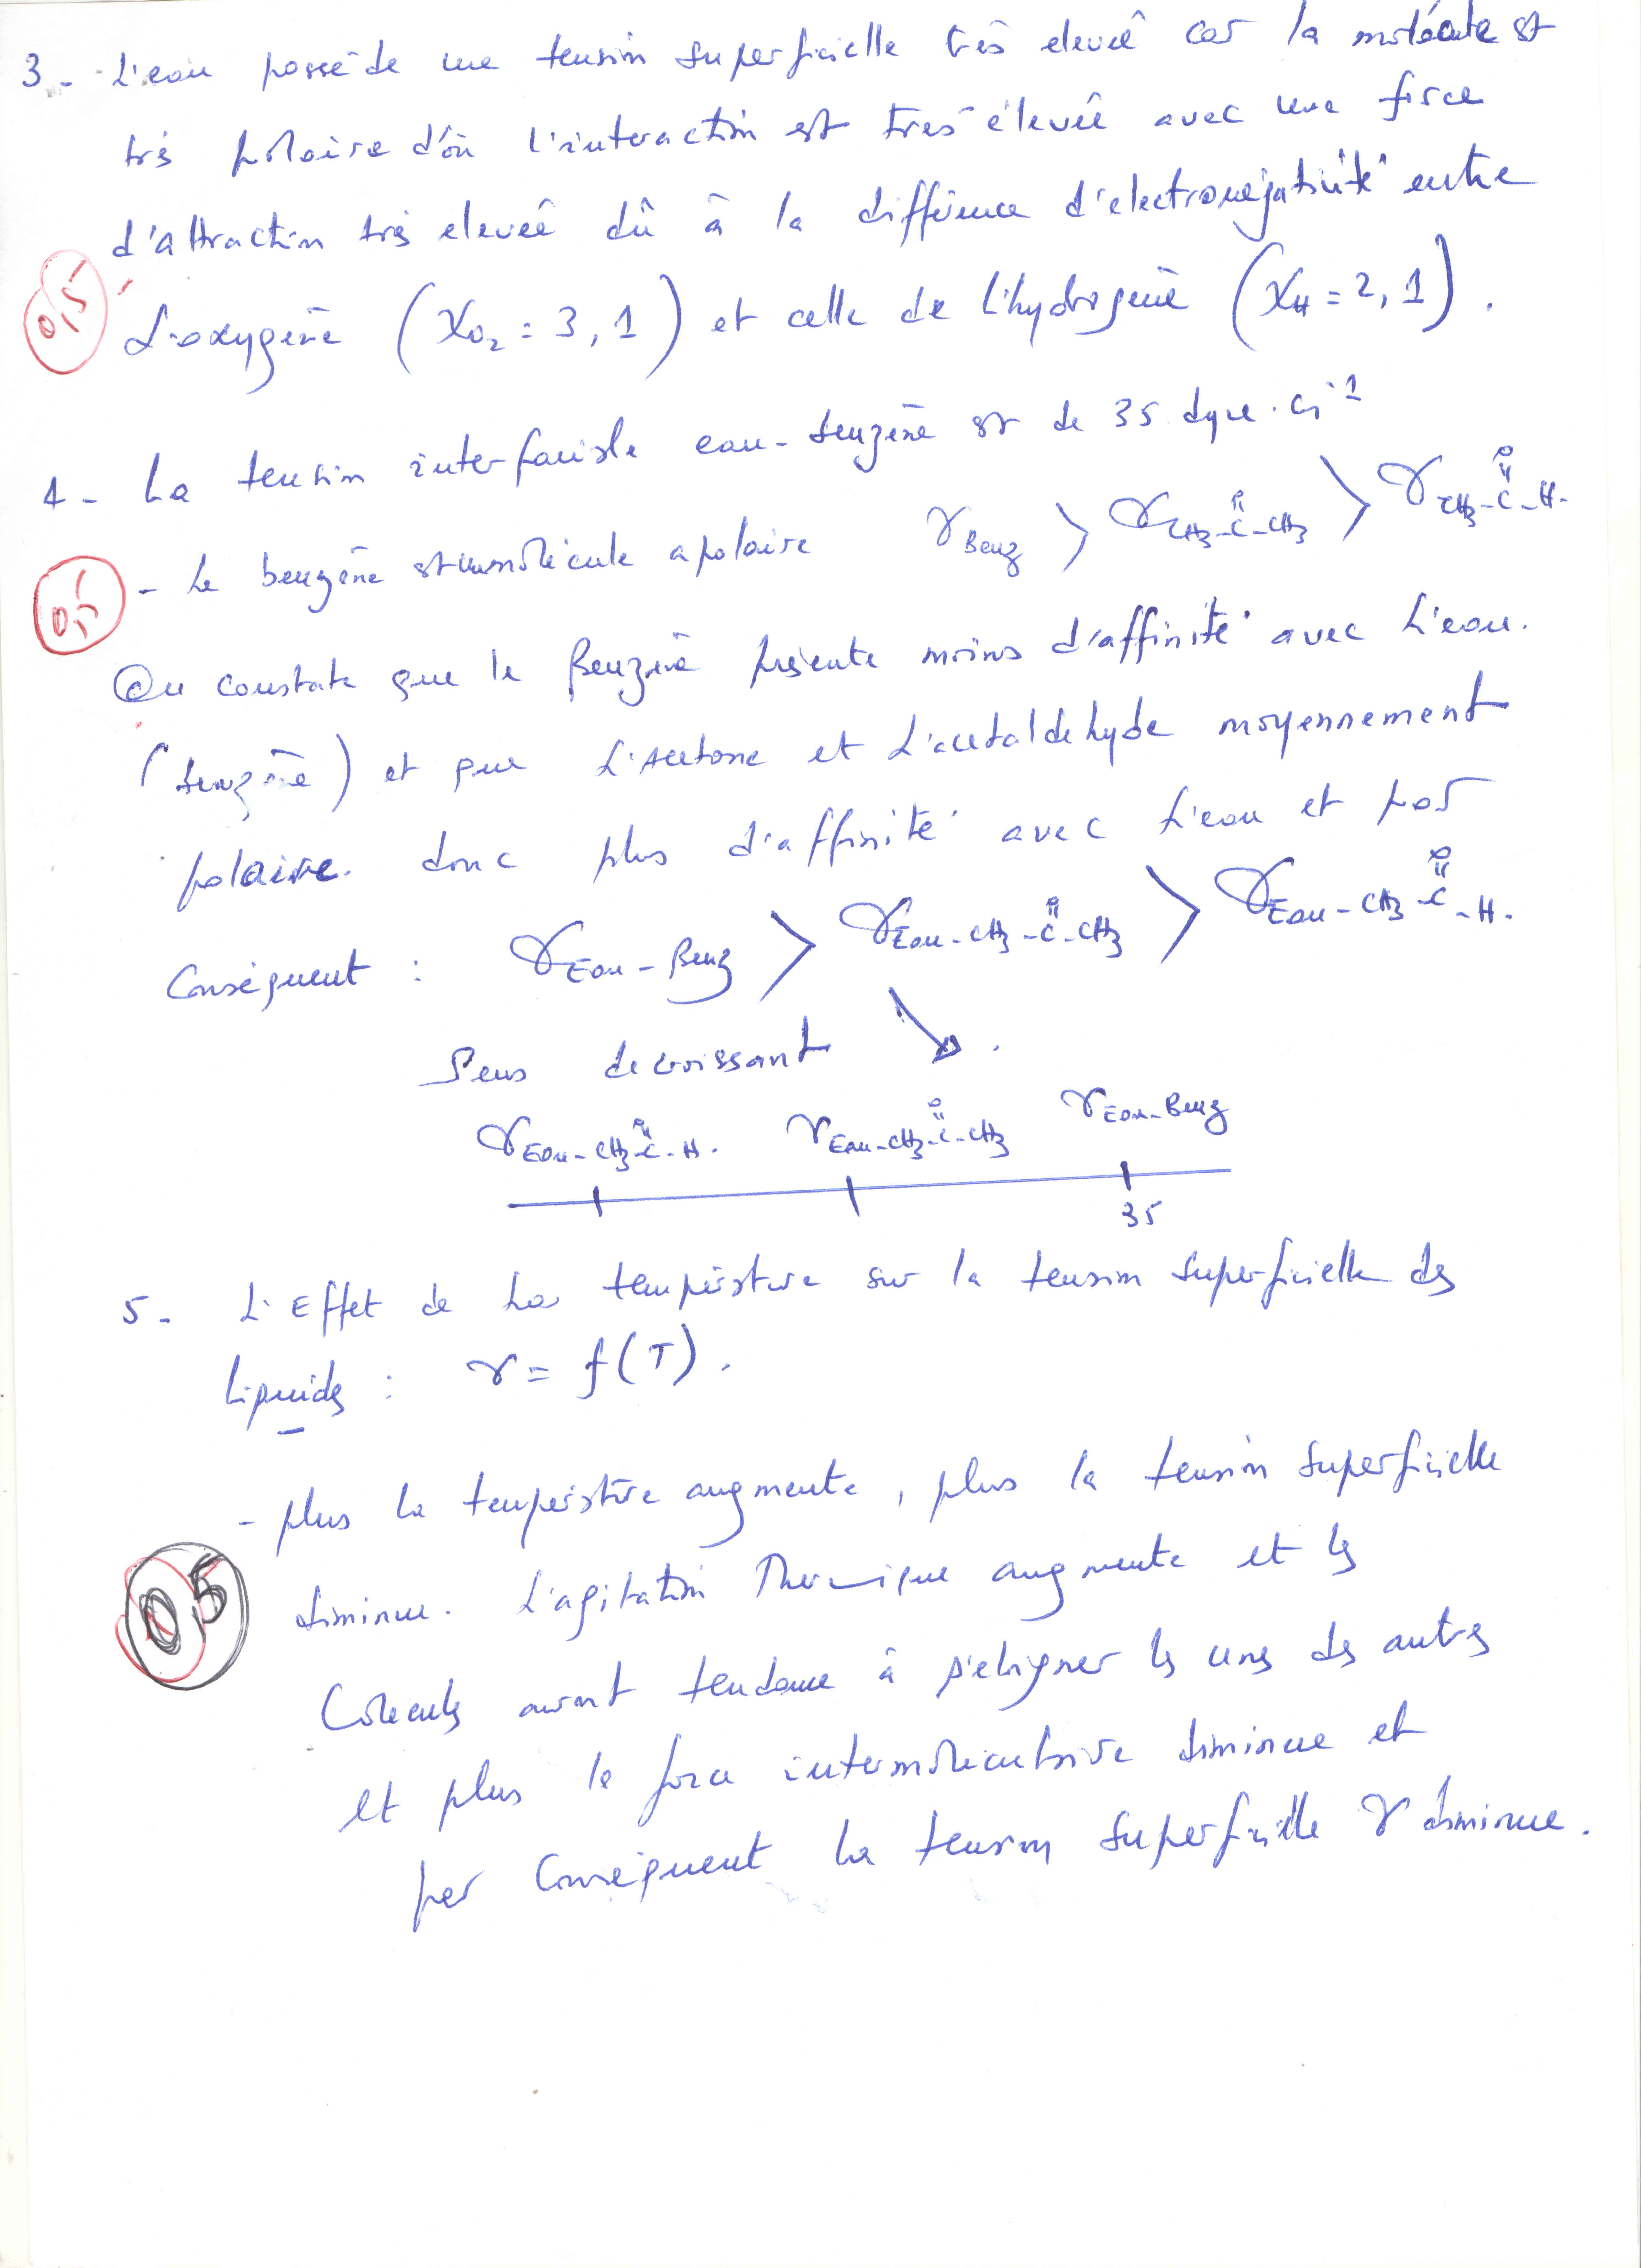 3 - L'eau possède une tension superficielle très elevée car la molécule est
très polaire d'où l'interaction est très élevée avec une force
d'attraction très elevée dû à la différence d'electronégativité entre
0,5
L'oxygène (X_O2 = 3,1) et celle de l'hydrogène (X_H = 2,1).
4 - La tension interfaciale eau-benzène est de 35 dyne.cm^-1
0,5
- Le benzène est une molécule apolaire γ_Benz > γ_CH3-C(=O)-CH3 > γ_CH3-C(=O)-H.
On constate que le Benzène présente moins d'affinité avec L'eau.
(benzène) et que L'Acétone et L'acétaldehyde moyennement
polaire. donc plus d'affinité avec L'eau et par
Conséquent : γ_Eau-Benz > γ_Eau-CH3-C(=O)-CH3 > γ_Eau-CH3-C(=O)-H.
Sens decroissant ↘.
γ_Eau-CH3-C(=O)-H. γ_Eau-CH3-C(=O)-CH3 γ_Eau-Benz
35
5 - L'Effet de La température sur la tension superficielle des
Liquides : γ = f(T).
- plus la température augmente, plus la tension superficielle
0,5
diminue. L'agitation Thermique augmente et les
auront tendance à s'eloigner les uns des autres
et plus la force intermoléculaire diminue et
par Conséquent La tension superficielle γ diminue.